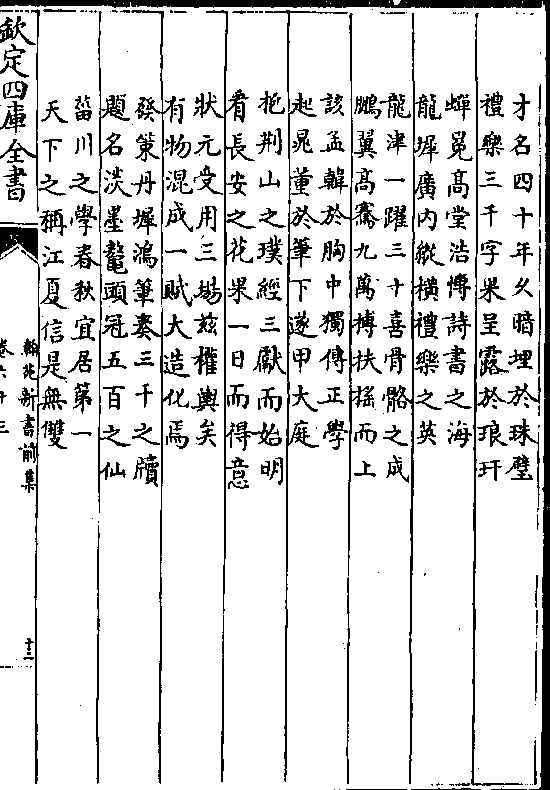 才名四十年久暗埋於珠璧
禮樂三千字果呈露於琅玕
蟬冕高堂浩博詩書之海
龍墀廣内縱横禮樂之英
龍津一躍三十喜骨骼之成
鵬翼高騫九萬摶扶揺而上
該孟韓於胸中獨傳正學
起晁董於筆下遂甲大庭
抱荆山之璞經三獻而始明
看長安之花果一日而得意
狀元受用三塲兹權輿矣
有物混成一賦大造化焉
發策丹墀鴻筆奏三千之牘
題名淡墨鼇頭冠五百之仙
菑川之學春秋宜居第一
天下之稱江夏信是無雙
欽定四庫全書
翰苑新書前集
卷六十三
十三